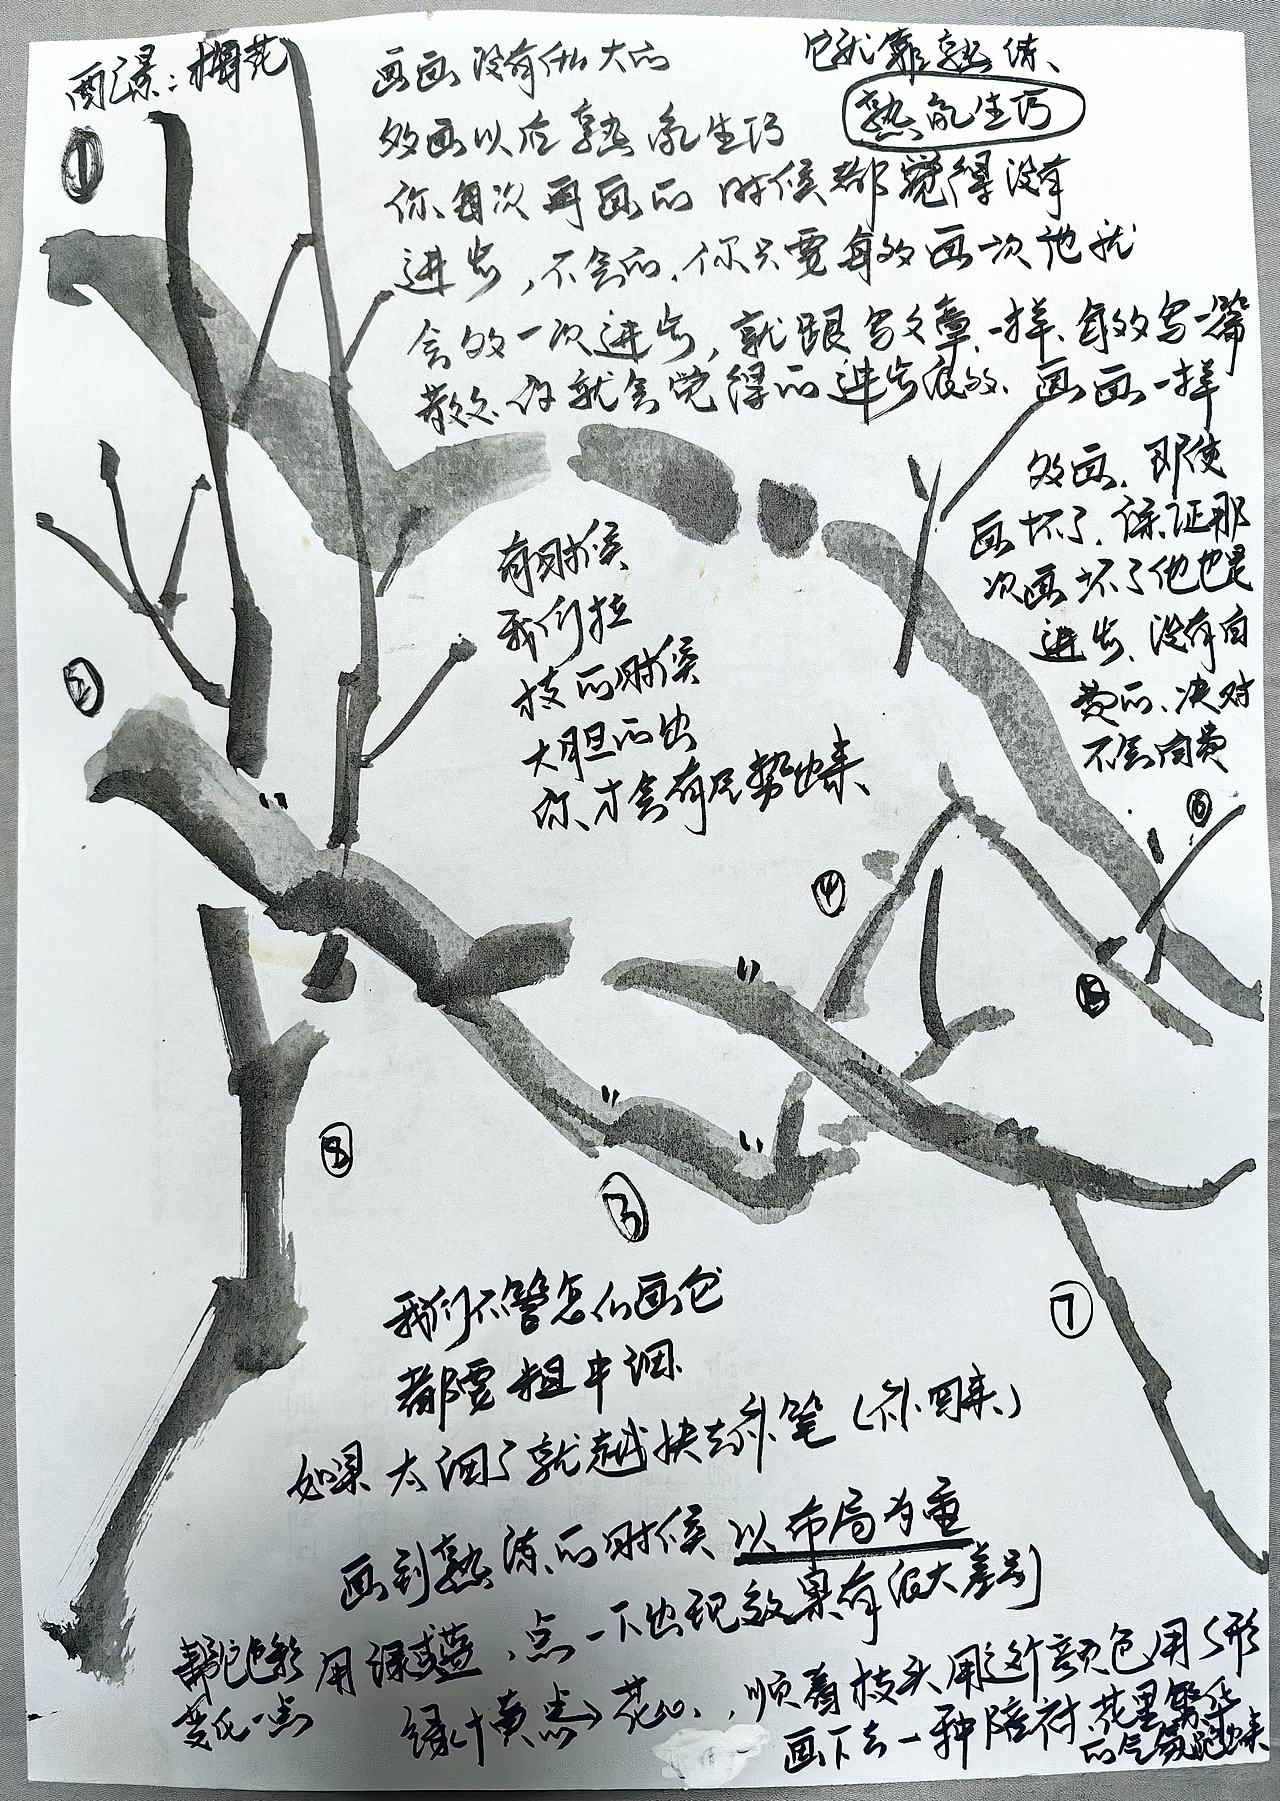 配景：梅花
①
画画没有什么大的
它就靠熟练、
熟能生巧
多画以后熟能生巧
你每次再画的时候都觉得没有
进步，不会的，你只要每多画一次他就
会多一次进步，就跟写文章一样、每多写一篇
散文你就会觉得的进步很多、画画一样
多画、即使
画坏了、保证那
次画坏了他也是
进步、没有白
费的、决对
不会白费
有时候
我们拉
枝的时候
大胆的出
你才会有气势出来
②
⑥
④
⑤
⑧
③
⑦
我们不管怎么画它
都要粗中调
如果太润了就越快去补笔（补回来）
画到熟练的时候以布局为重
用绿或蓝，点一下出现效果有很大差别
色彩
变化一点
绿+黄点→花心，顺着枝头用这个颜色用S形
画下去一种陪衬、花里繁华
的气氛